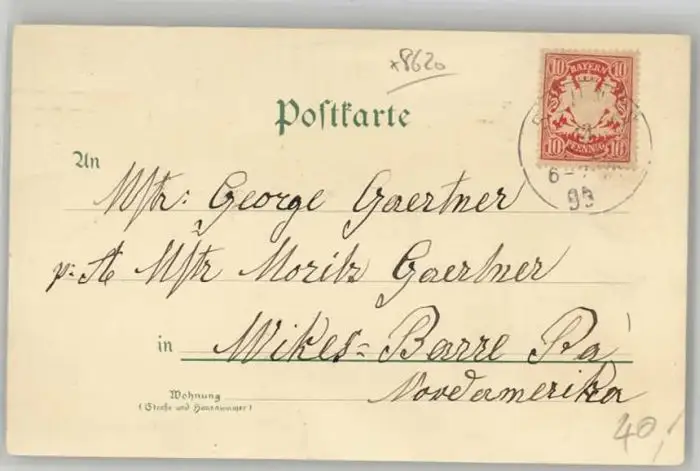 x8620
10 BAYERN 10
10 PFENNIG 10
6-7
99
Postkarte
An
Mstr: George Gaertner
p: A Mstr Moritz Gaertner
in Wikes-Barre Pa
Nordamerika
Wohnung
(Straße und Hausnummer)
40,